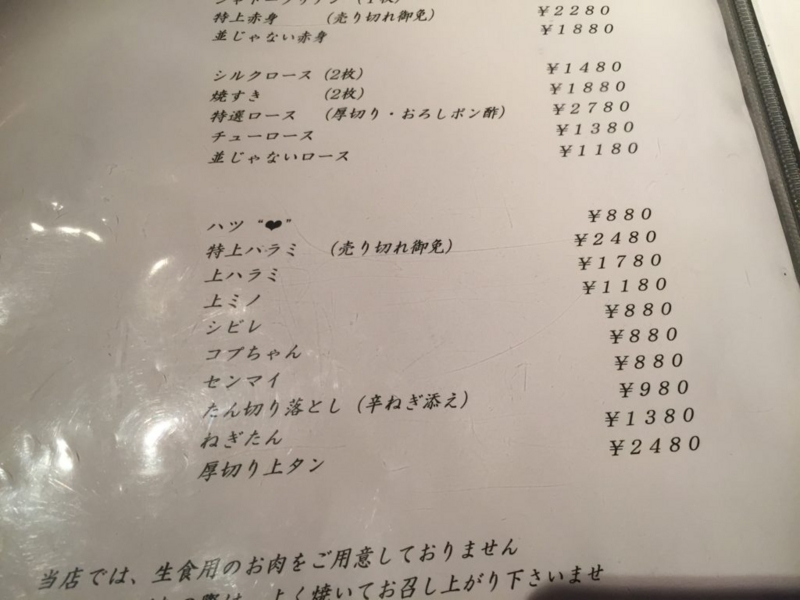 特上赤身 (売り切れ御免) ¥2280
並じゃない赤身 ¥1880
シルクロース (2枚) ¥1480
焼すき (2枚) ¥1880
特選ロース (厚切り・おろしポン酢) ¥2780
チューロース ¥1380
並じゃないロース ¥1180
ハツ “❤” ¥880
特上ハラミ (売り切れ御免) ¥2480
上ハラミ ¥1780
上ミノ ¥1180
シビレ ¥880
コブちゃん ¥880
センマイ ¥880
たん切り落とし (辛ねぎ添え) ¥980
ねぎたん ¥1380
厚切り上タン ¥2480
当店では、生食用のお肉をご用意しておりません
よく焼いてお召し上がり下さいませ